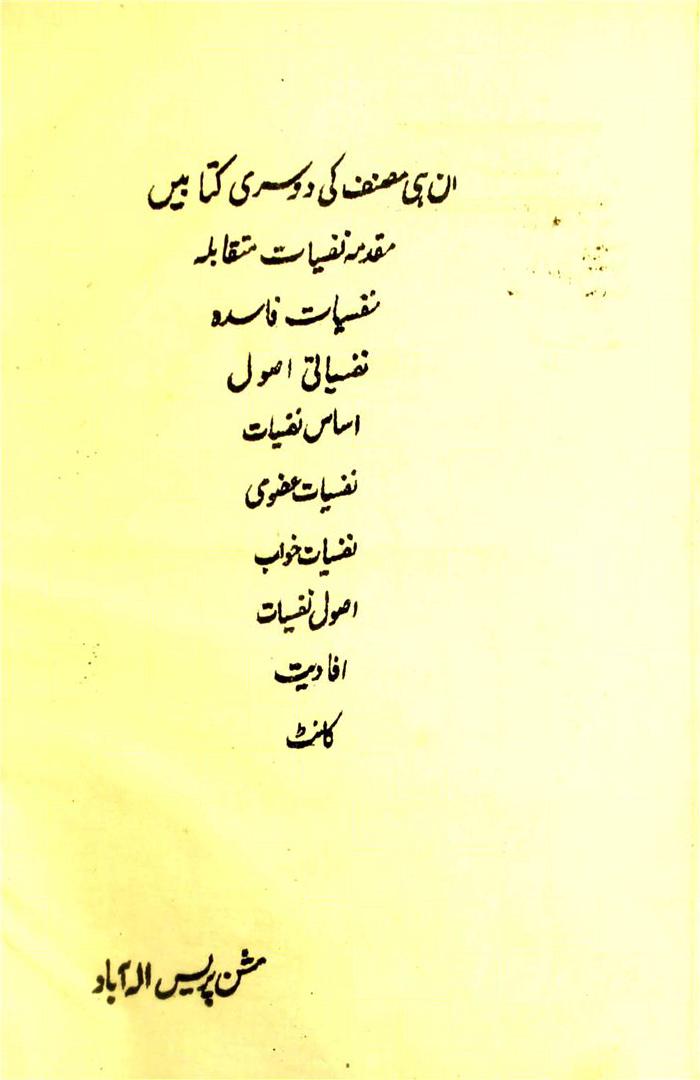 ان ہی مصنف کی دوسری کتابیں
مقدمہ نفسیات متقابلہ
نفسیات فاسدہ
نفسیاتی اصول
اساس نفسیات
نفسیات عضوی
نفسیات خواب
اصول نفسیات
افادیت
کانٹ
مشن پریس الہ آباد